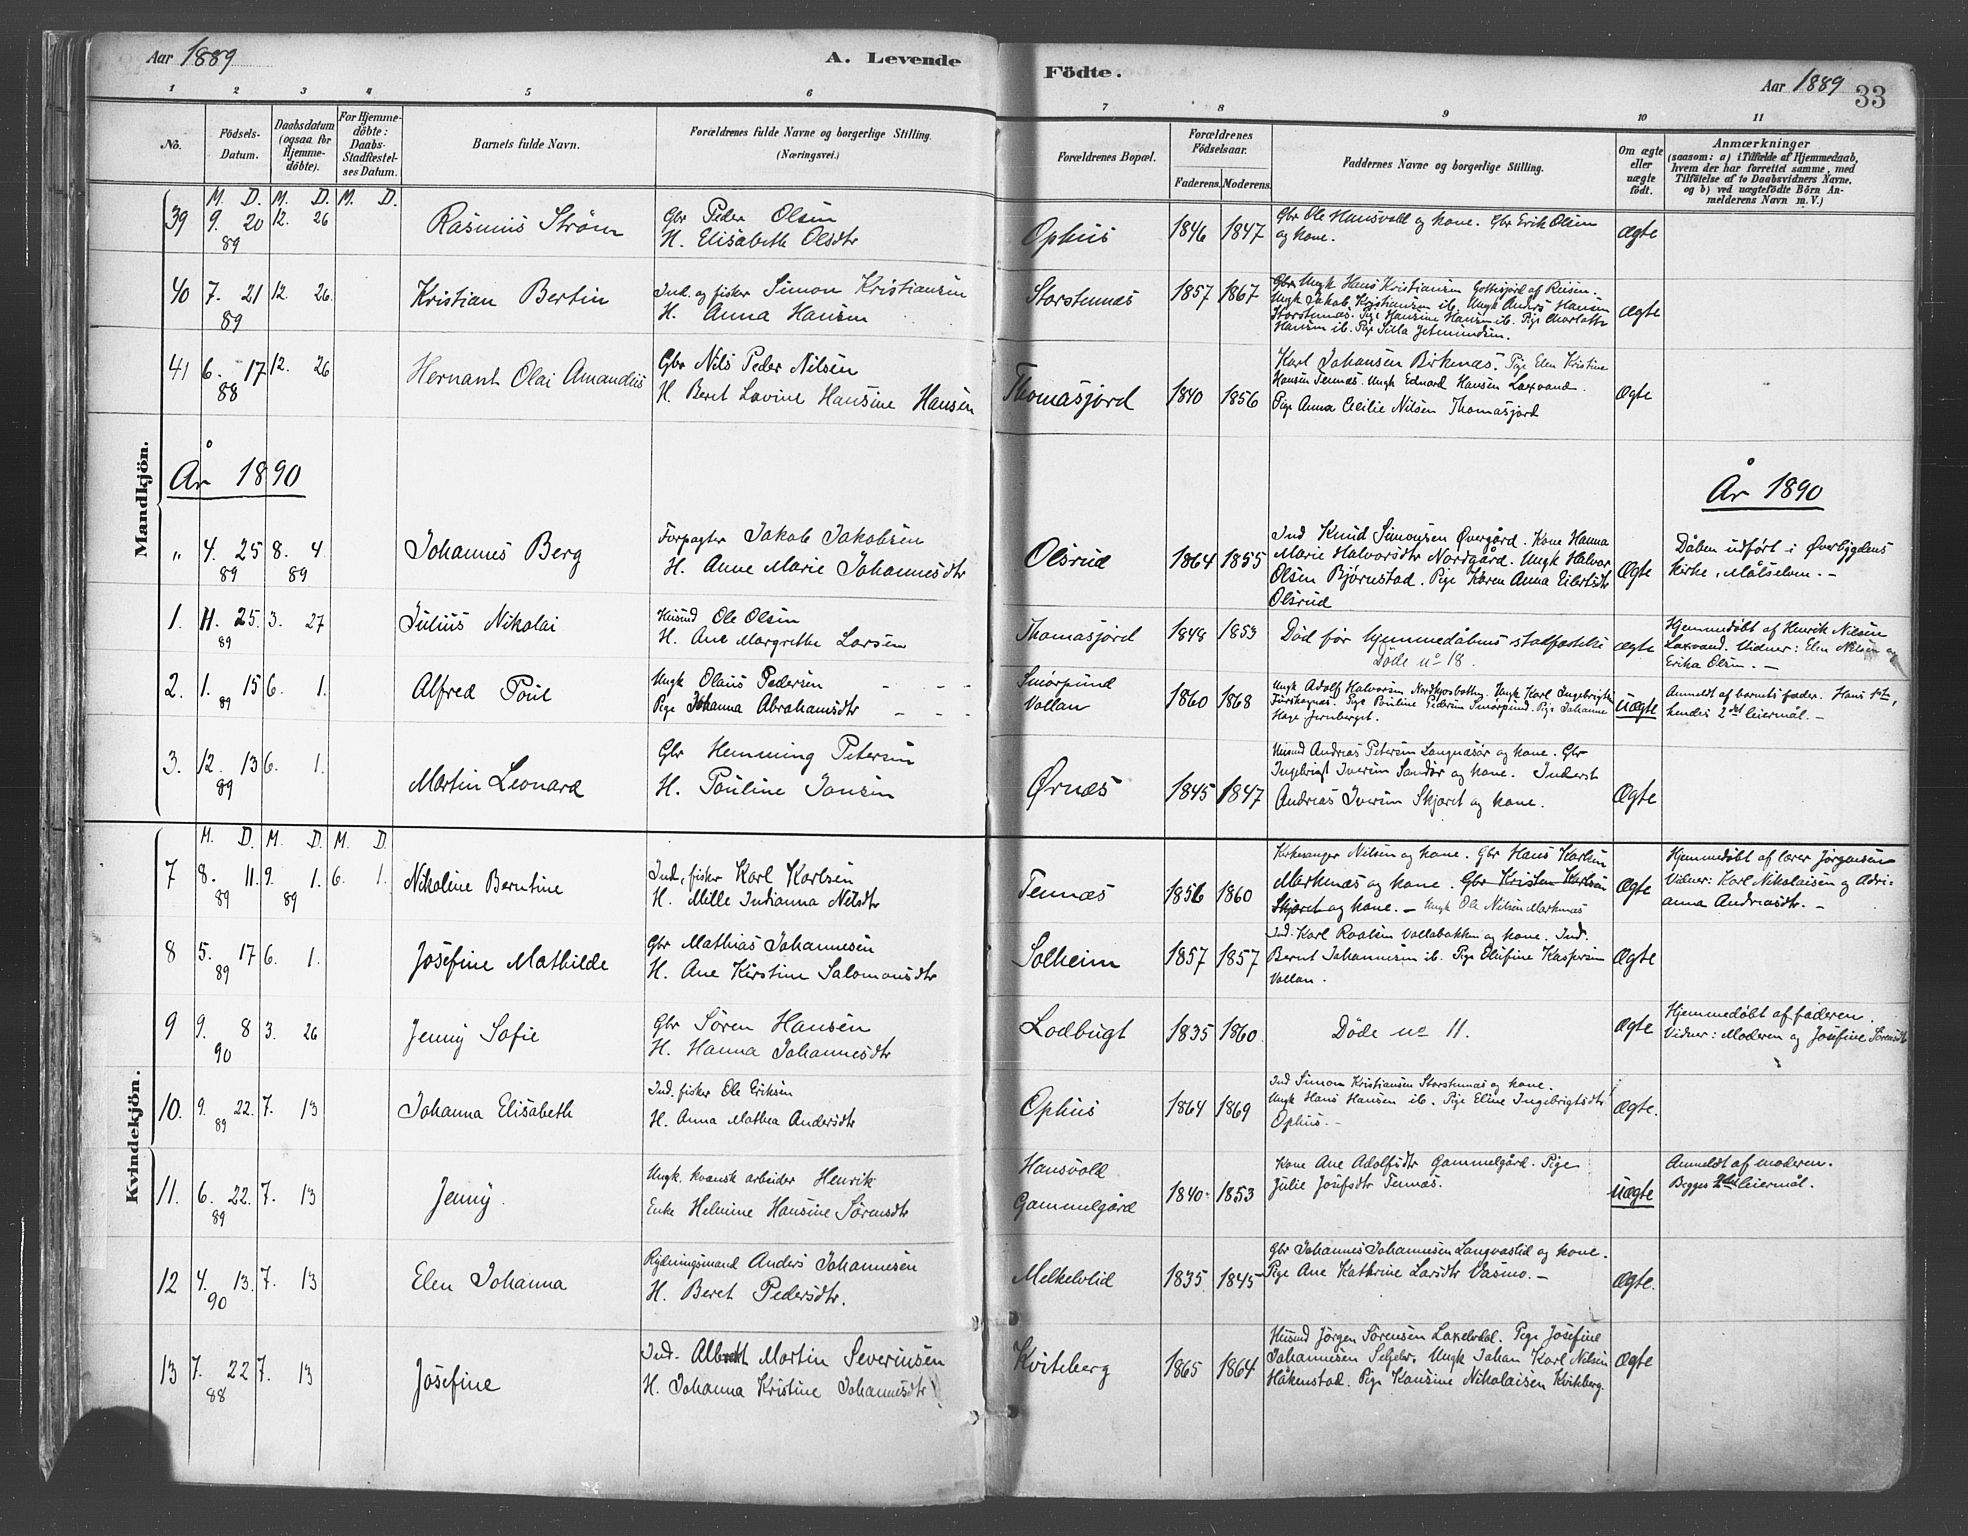 Aar 1889
A. Levende
Födte.
Aar 1889
33
1 2 3 4 5 6 7 8 9 10 11
No.
Födsels-
Datum.
Daabsdatum
(ogsaa for
Hjemme-
döbte).
For Hjemme-
döbte:
Daabs-
Stadfæstel-
ses Datum.
Barnets fulde Navn.
Forældrenes fulde Navne og borgerlige Stilling.
(Næringsvei.)
Forældrenes Bopæl.
Forældrenes
Födselsaar.
Faderens. Moderens.
Faddernes Navne og borgerlige Stilling.
Om ægte
eller
uægte
födt.
Anmærkninger
(saasom: a) i Tilfælde af Hjemmedaab,
hvem der har forrettet samme, med
Tilföielse af to Daabsvidners Navne,
og b) ved uægtefödte Börn An-
melderens Navn m. V.)
Mandkjön.
M. D. M. D. M. D.
39 9. 20 12. 26
89
Rasmus Strøm
Gbr Peder Olsen
H. Elisabeth Olsdtr
Ophus
1846 1847
Gbr Ole Hansvold og kone. Gbr Erik Olsen
og kone.
Ægte
40 7. 21 12. 26
89
Kristian Bertin
Ind. og fisker Simon Kristiansen
H. Anna Hansen
Storstennæs
1857 1867
Ungk Hans Kristiansen Gottesjord af Reisen.
Ungk Jakob Kristiansen ib. Ungk Anders Hansen
Storstennæs. Pige Hansine Hansen ib. Pige Charlotte
Hansen ib. Pige Silla Jetmundsen.
Ægte
41 6. 17 12. 26
88
Hernant Olai Amandus
Gbr Nils Peder Nilsen
H. Beret Lovine Hansine Hansen
Thomasjord
1840 1856
Karl Johansen Birkenæs. Pige Elen Kristine
Hansen Tennæs. Ungk Edvard Hansen Laxvand.
Pige Anna Cecilie Nilsen Thomasjord
Ægte
År 1890
År 1890
„ 4. 25 8. 4
89 89
Johannes Berg
Forpagter Jakob Jakobsen
H. Anne Marie Johannesdtr
Olsrud
1864 1855
Ind Knud Simonsen Øvergård. Kone Hanna
Marie Halvorsdtr Nordgård. Ungk Halvor
Olsen Bjørnstad. Pige Karen Anna Eilertsdtr
Olsrud
Ægte
Dåben udført i Øverbygdens
kirke, Målselven. —
1. 11. 25. 3. 27
89
Julius Nikolai
Husmd Ole Olsen
H. Ane Margrethe Larsen
Thomasjord
1848 1853
Død før hjemmedåbens stadfæstelse
Døde no 18.
Ægte
Hjemmedøbt af Henrik Nilsen
Laxvand. Vidner: Elen Nilsen og
Erika Olsen. —
2. 1. 15 6. 1.
89
Alfred Poul
Ungk Olaus Pedersen
Pige Johanna Abrahamsdtr
Smørpund
Vollan
1860 1868
Ungk Adolf Halvorsen Nordkjosbotten. Ungk Karl Ingebrigts
Pige Pouline Pedersen Smørpund. Pige Johanne
Hage Jernberget.
Uægte
Anmeldt af barnets fader. Hans 1ste,
hendes 2det leiermål. —
3. 12. 13 6. 1.
89
Martin Leonard
Gbr Hemming Petersen
H. Pouline Jonsen
Ørnæs
1845 1847
Husmd Andreas Petersen Langnæsør og kone. Gbr
Ingebrigt Iversen Sandør og kone. Inderst
Andreas Iversen Skjæret og kone.
Ægte
Kvindekjön.
M. D. M. D. M. D.
7 8. 11. 9. 1. 6. 1.
89 89
Nikoline Berntine
Ind., fisker Karl Karlsen
H. Mille Indianna Nilsdtr
Tennæs
1856 1860
Kirkesanger Nilsen og kone. Gbr Hans Karlsen
Markenæs og kone. Gbr Kristen Karlsen
Skjæret og kone. — Ungk Ole Nilsen Markenæs
Ægte
Hjemmedøbt af lærer Jørgensen
Vidner: Karl Nikolaisen og Adri-
anna Andreasdtr. —
8 5. 17 6. 1.
89
Josefine Mathilde
Gbr Mathias Johannesen
H. Ane Kirstine Salomonsdtr
Solheim
1857 1857
Ind. Karl Roalsen Vollabakken og kone. Ind.
Bernt Johannesen ib. Pige Elefine Kaspersen
Vollan.
Ægte
9 9. 8 3. 26
90
Jenny Sofie
Gbr Søren Hansen
H. Hanna Johannesdtr
Lodbugt
1835 1860.
Døde no 11.
Ægte
Hjemmedøbt af faderen.
Vidner: Moderen og Josefine Sørensdtr
10. 9. 22. 7. 13
89
Johanna Elisabeth
Ind. fisker Ole Eriksen
H. Anna Mathea Andersdtr
Ophus
1864 1869
Ind Simon Kristiansen Storstennæs og kone.
Ungk Hans Hansen ib. Pige Eline Ingebrigtsdtr
Ophus. —
Ægte.
11. 6. 22. 7. 13
89
Jenny.
Ungk. kvænsk arbeider Henrik
Enke Helmine Hansine Sørensdtr
Hansvold
Gammelgård
1840 1853
Kone Ane Adolfsdtr Gammelgård. Pige
Julie Josefsdtr Tennæs.
Uægte
Anmeldt af moderen.
Begges 2det leiermål.
12 4. 13. 7. 13
90
Elen Johanna
Rydningsmand Anders Johannesen
H. Beret Pedersdtr.
Melkelvlid
1835 1845
Gbr Johannes Johannesen Langvaslid og kone.
Pige Ane Kathrine Larsdtr Vasmo. —
Ægte.
13 7. 22 7. 13
88
Josefine
Ind. Albrekt Martin Severinsen
H. Johanna Kristine Johannesdtr
Kviteberg
1865 1864
Husmd Jørgen Sørensen Laxelvdal. Pige Josefine
Johannesen Seljelv. Ungk Johan Karl Nilsen
Håkenstad. Pige Kansine Nikolaisen Kviteberg.
Ægte